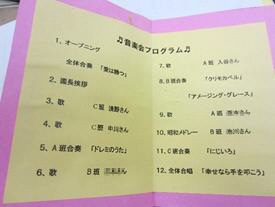 ♫音楽会プログラム♫
1、オープニング
全体合奏 「愛は勝つ」
2、園長挨拶
3、歌 C班 浅野さん
4、歌 C班 中川さん
5、A班合奏 「ドレミのうた」
6、歌 B班
7、歌 A班 入谷さん
8、B班合奏 「クリモカベル」
「アメージング・グレース」
9、歌 A班
10、昭和メドレー B班 池川さん
11、C班合奏 「にじいろ」
12、全体合唱 「幸せなら手を叩こう」